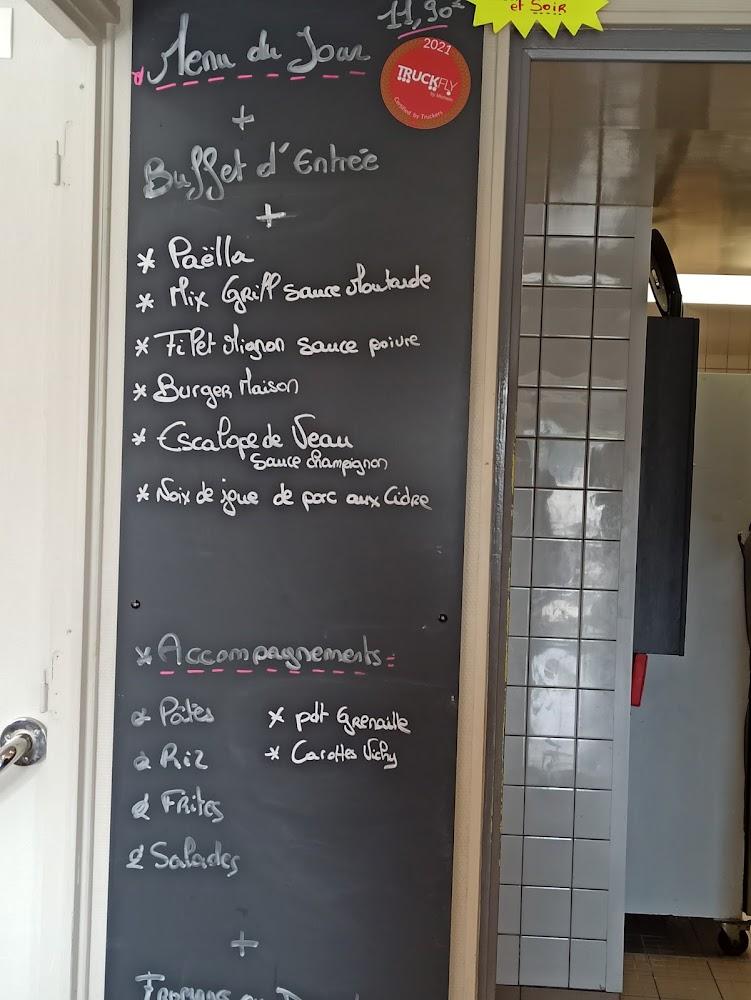 et SOIR
11,90€
Menu du Jour
2021
TRUCKFLY
by Michelin
Certified by Truckers
+
Buffet d'Entrée
+
* Paëlla
* Mix Grill sauce Moutarde
* Filet Mignon sauce poivre
* Burger Maison
* Escalope de Veau
sauce champignon
* Noix de joue de porc aux Cidre
* Accompagnements:
* Pates
* pdt Grenaille
* Riz
* Carottes Vichy
* Frites
* Salades
+